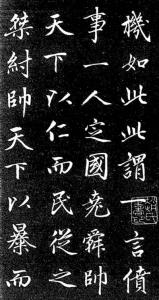 機如此此謂一言僨
事一人定國堯舜帥
天下以仁而民從之
桀紂帥天下以暴而